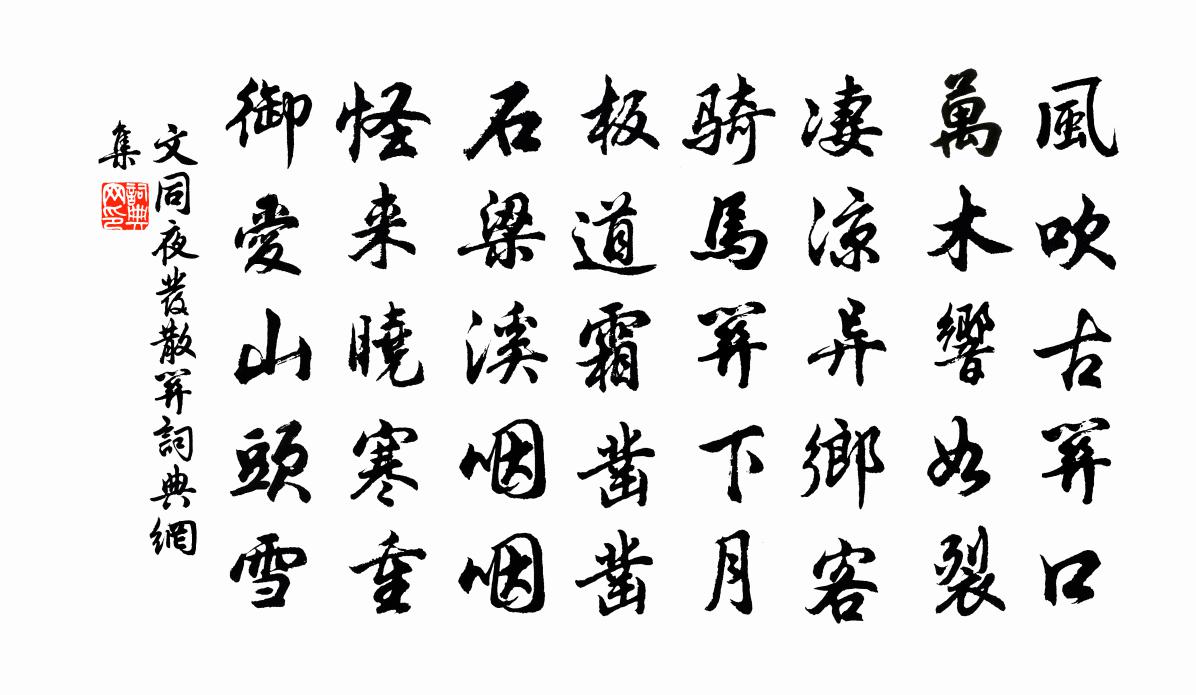 風吹古關口
萬木響如裂
凄涼异鄉客
騎馬關下月
板道霜凿凿
石梁溪咽咽
怪来曉寒重
御愛山頭雪
文同夜發散關詞典網
集
詞典
网印